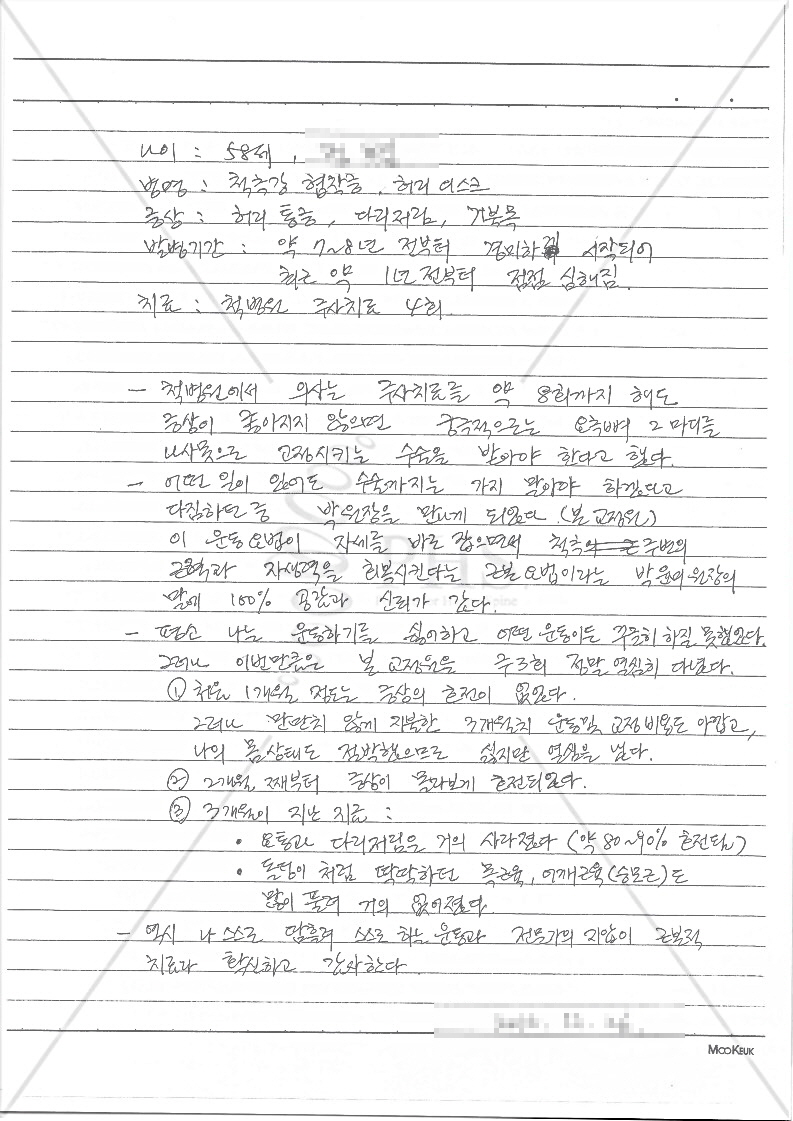 나이 : 58세,
병명 : 척추강 협착증, 허리 디스크
증상 : 허리 통증, 다리저림, 거북목
발병기간 : 약 7~8년 전부터 경미하게 시작되어
최근 약 1년 전부터 점점 심해짐.
치료 : 척병원 주사치료 4회
- 척병원에서 의사는 주사치료를 약 8회까지 해도
증상이 좋아지지 않으면 궁극적으로는 요추뼈 2마디를
나사못으로 고정시키는 수술을 받아야 한다고 했다.
- 어떤 일이 있어도 수술까지는 가지 말아야 하겠다고
다짐하던 중 박원장을 만나게 되었다. (본 교정원)
이 운동요법이 자세를 바로 잡으면서 척추 주변의
근육과 자생력을 회복시킨다는 근본 요법이라는 박 원장의
말에 100% 공감과 신뢰가 갔다.
- 평소 나는 운동하기를 싫어하고 어떤 운동이든 꾸준히 하질 못했었다.
그러나 이번만큼은 본 교정원을 주3회 정말 열심히 다녔다.
① 처음 1개월 정도는 증상의 호전이 없었다.
그러나 만만치 않게 지불한 3개월치 운동및 교정비용도 아깝고,
나의 몸상태도 절박했으므로 싫지만 열심을 냈다.
② 2개월 째부터 증상이 몰라보게 호전되었다.
③ 3개월이 지난 지금 :
• 요통과 다리저림은 거의 사라졌다 (약 80~90% 호전됨)
• 돌덩이 처럼 딱딱하던 목근육, 어깨근육(승모근)도
많이 풀려 거의 없어졌다.
- 역시 나 스스로 땀흘려 스스로 하는 운동과 전문가의 지압이 근본적
치료라 확신하고 감사한다.
MOOKEUK